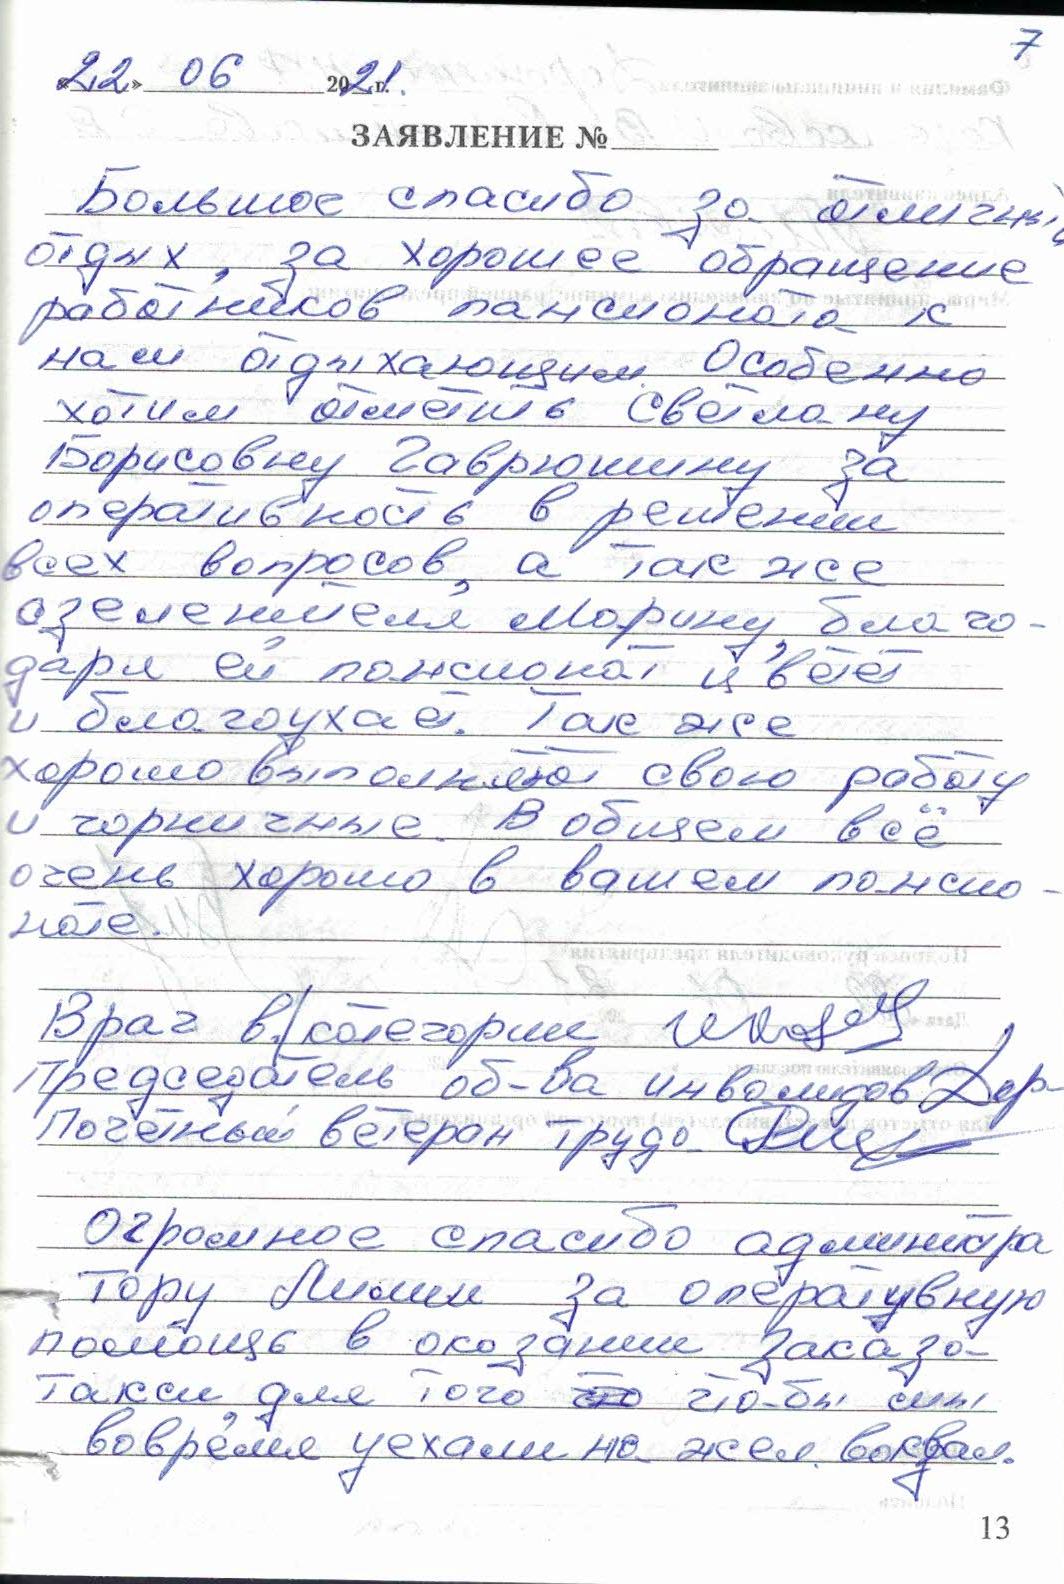 7
«22» 06 2021 г.
ЗАЯВЛЕНИЕ №
Большое спасибо за отличный
отдых, за хорошее обращение
работников пансионата к
нам отдыхающим. Особенно
хотим отметить Светлану
Борисовну Гаврюшину за
оперативность в решении
всех вопросов, а так же
озеленителя Марину, благо-
даря ей пансионат цветёт
и благоухает. Так же
хорошо выполняют свою работу
и горничные. В общем всё
очень хорошо в вашем пансио-
нате.
Врач в/категории
Председатель об-ва инвалидов
Почётный ветеран труда
Огромное спасибо администра
тору Лилии за оперативную
помощь в оказании заказа-
такси, для того что-бы мы
вовремя уехали на жел. вокзал.
13